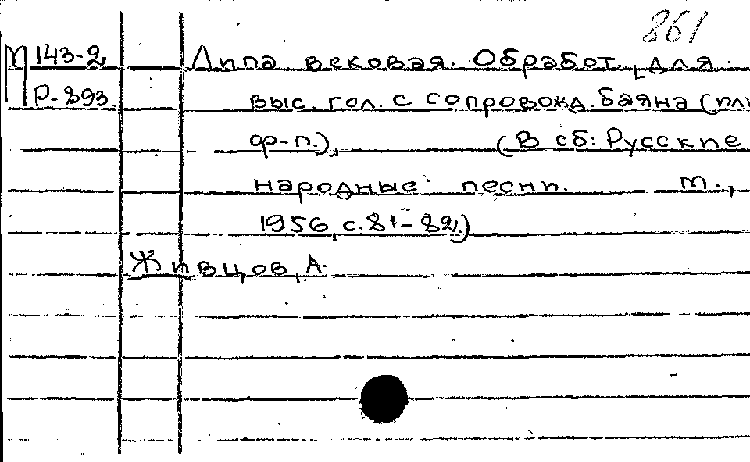 861
П 143-2 Липа вековая. Обработ. для
Р-893 выс. гол. с сопровожд. баяна (или
ф-п.). (В сб: Русские
народные песни. М.,
1956, с. 81-82.)
Живцов, А.